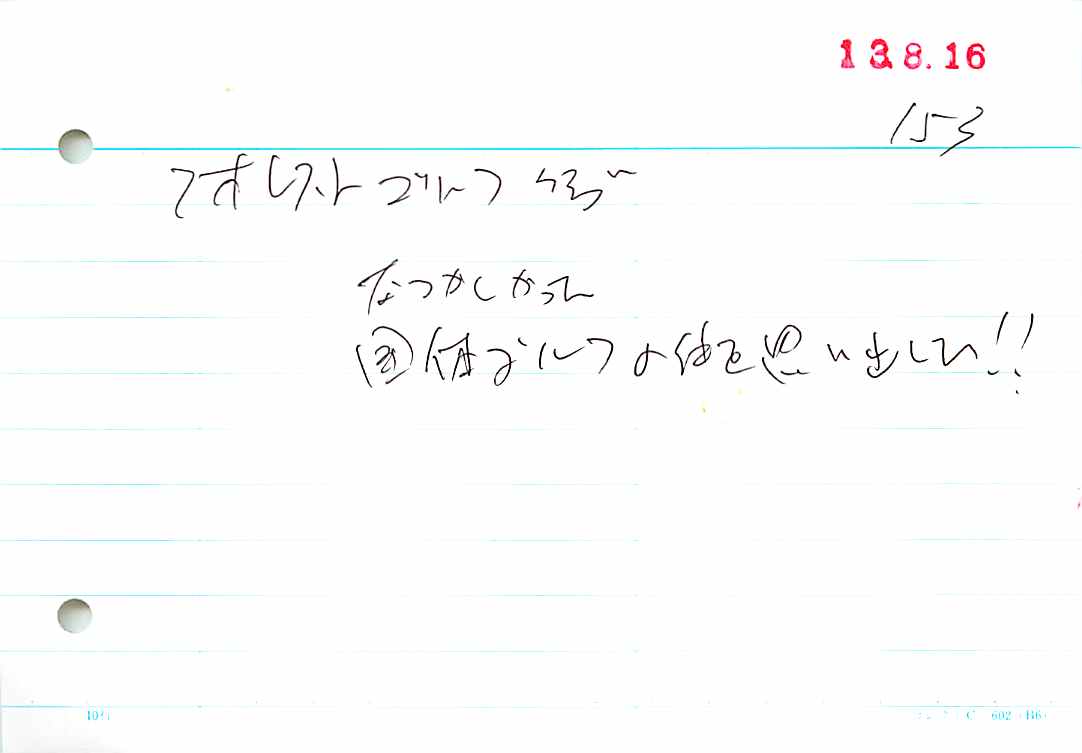 13.8.16
153
フォレストゴルフ
なつかしかった
団体ゴルフの
を思い出した!!
C 602 B6